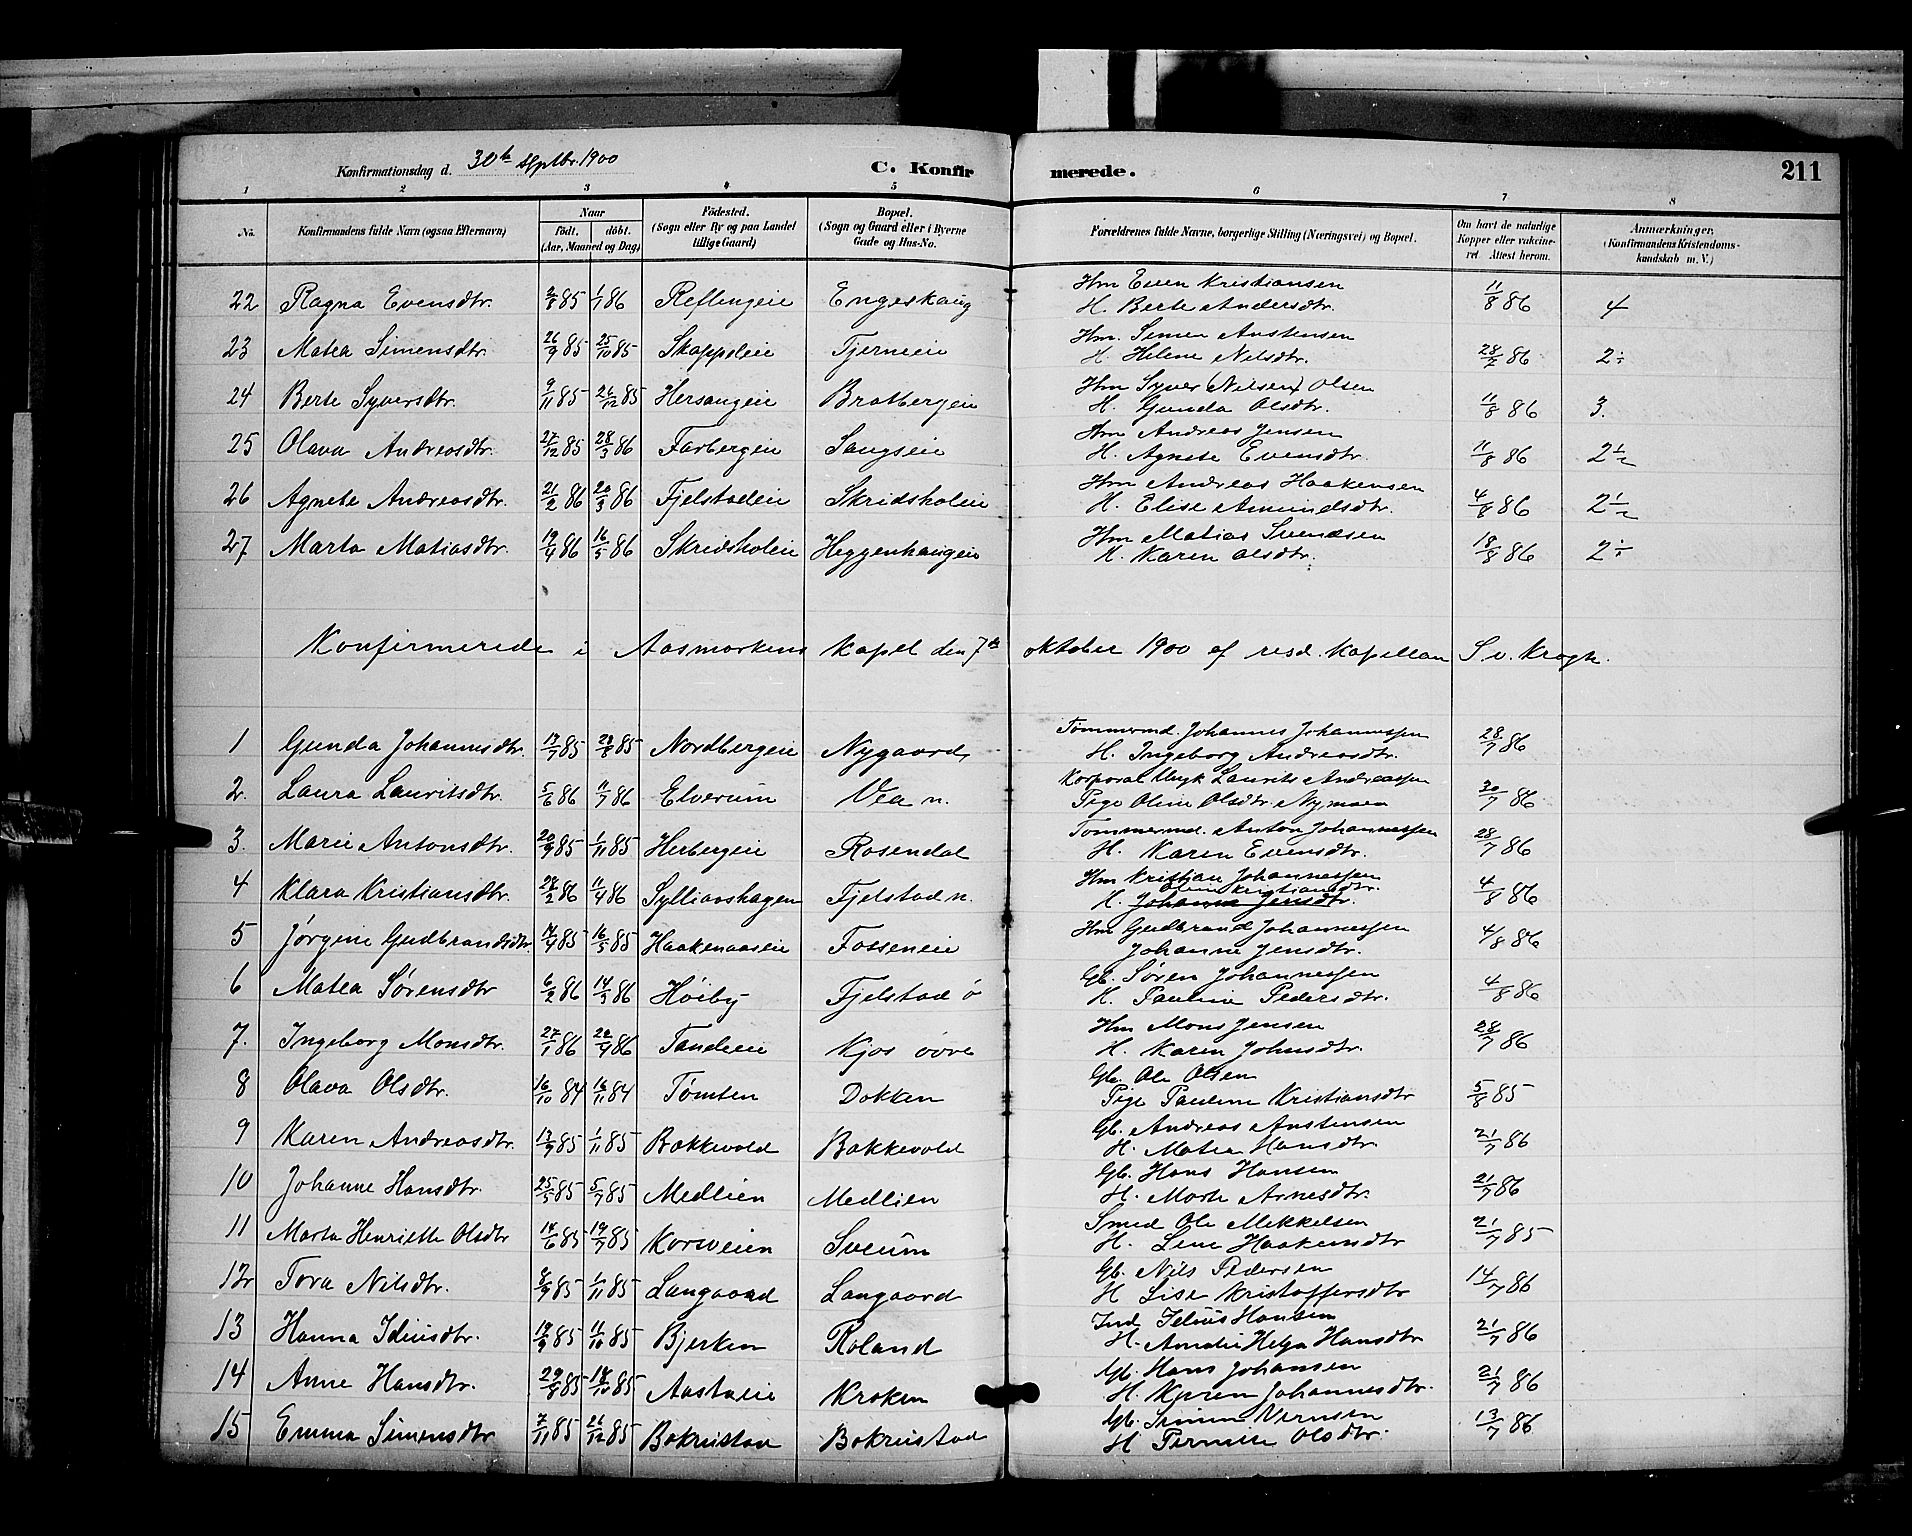 Konfirmationsdag d. 30te Septbr. 1900 C. Konfirmerede. 211
1 2 3 4 5 6 7 8
No. Konfirmandens fulde Navn (ogsaa Efternavn) Naar født. døbt. (Aar, Maaned og Dag) Födested. (Sogn eller By og paa Landet tillige Gaard) Bopæl. (Sogn og Gaard eller i Byerne Gade og Hus-No. Forældrenes fulde Navne, borgerlige Stilling (Næringsvei) og Bopæl. Om havt de naturlige Kopper eller vakcineret. Attest herom. Anmærkninger. (Konfirmandens Kristendomskundskab m. V.)
22 Ragna Evensdtr. 2/8 85 1/1 86 Reflingeie Engeskaug Hm Even Kristiansen 11/8 86 4
H. Berte Andersdtr.
23 Matea Simensdtr. 26/9 85 25/10 85 Skappeleie Tjerneie Hm. Simen Anstensen 28/7 86
H. Helene Nilsdtr.
24 Berte Syversdtr. 9/11 85 26/12 85 Hersaugeie Bratbergeie Hm Syver (Nilsen) Olsen 11/8 86 3.
H. Gunda Olsdtr.
25 Olava Andreasdtr. 27/12 85 28/3 86 Farbergeie Saugseie Hm Andreas Jensen 11/8 86 2 1/2
H. Agnete Evensdtr.
26 Agnete Andreasdtr. 21/2 86 20/3 86 Fjelstadeie Skridsholeie Hm Andreas Haakensen 4/8 86 2 1/2
H. Elise Amundsdtr.
27 Marta Matiasdtr. 19/4 86 16/5 86 Skridsholeie Heggenhaugeie Hm Matias Svendsen 18/8 86
H. Karen Olsdtr.
Konfirmerede i Aasmarkens Kapel den 7de oktober 1900 af resd. Kapellan S v. Krogh.
1 Gunda Johannesdtr. 17/7 85 23/8 85 Nordbergeie Nygaard Tømmermd. Johannes Johannessen 28/7 86
H. Ingeborg Andreasdtr.
2. Laura Lauritsdtr. 5/6 86 11/7 86 Elverum Vea n. Korporal Ungk Laurits Andreassen 20/7 86
Pige Oline Olsdtr. Nymoen
3. Marie Antonsdtr. 20/9 85 1/11 85 Herbergeie Rosendal Tømmermd. Anton Johannessen 28/7 86
H. Karen Evensdtr.
4 Klara Kristiansdtr. 28/2 86 11/4 86 Sylliaashagen Fjelstad n. Hm Kristian Johannessen 4/8 86
Kristiansdtr.
H. Johanne Jensdtr.
5 Jørgine Gudbrandsdtr. 17/4 85 16/5 85 Haakenaaseie Fosseneie Hm Gudbrand Johannessen 4/8 86
Johanne Jensdtr.
6 Matea Sørensdtr 6/2 86 14/3 86 Høiby Fjelstad ø Gb. Søren Johannessen 4/8 86
H. Pauline Pedersdtr.
7. Ingeborg Monsdtr. 27/1 86 22/4 86 Tandeeie Kjos øvre Hm Mons Jensen 28/7 86
H. Karen Johnsdtr.
8 Olava Olsdtr. 16/10 84 16/11 84 Tømten Dokken Gb. Ole Olsen 5/8 85
Pige Pauline Kristiansdtr
9 Karen Andreasdtr. 13/9 85 1/11 85 Bakkevold Bakkevold Gb. Andreas Anstensen 21/7 86
H. Matea Hansdtr
10 Johanne Hansdtr. 25/5 85 5/7 85 Medlien Medlien Gb. Hans Hansen 21/7 86
H. Marte Arnesdtr.
11 Marta Henriette Olsdtr 14/6 85 19/7 85 Korsveien Sveum Smed Ole Mikkelsen 21/7 85
H. Lene Haakensdtr
12 Tora Nilsdtr. 8/9 85 1/11 85 Langaard Langaard Gb. Nils Pedersen 14/7 86
H Lise Kristoffersdtr
13 Hanna Idiusdtr. 18/9 85 11/10 85 Bjerken Roland Ind Idius Hansen 21/7 86
H. Amalie Helga Hansdtr
14 Anne Hansdtr. 29/8 85 18/10 85 Aastaeie Kroken Gb. Hans Johansen 21/7 86
H. Karen Johannesdtr.
15 Emma Simensdtr 7/11 85 26/12 85 Bakrustad Bakrustad Gb. Simen Iversen 13/7 86
H Pernille Olsdtr.